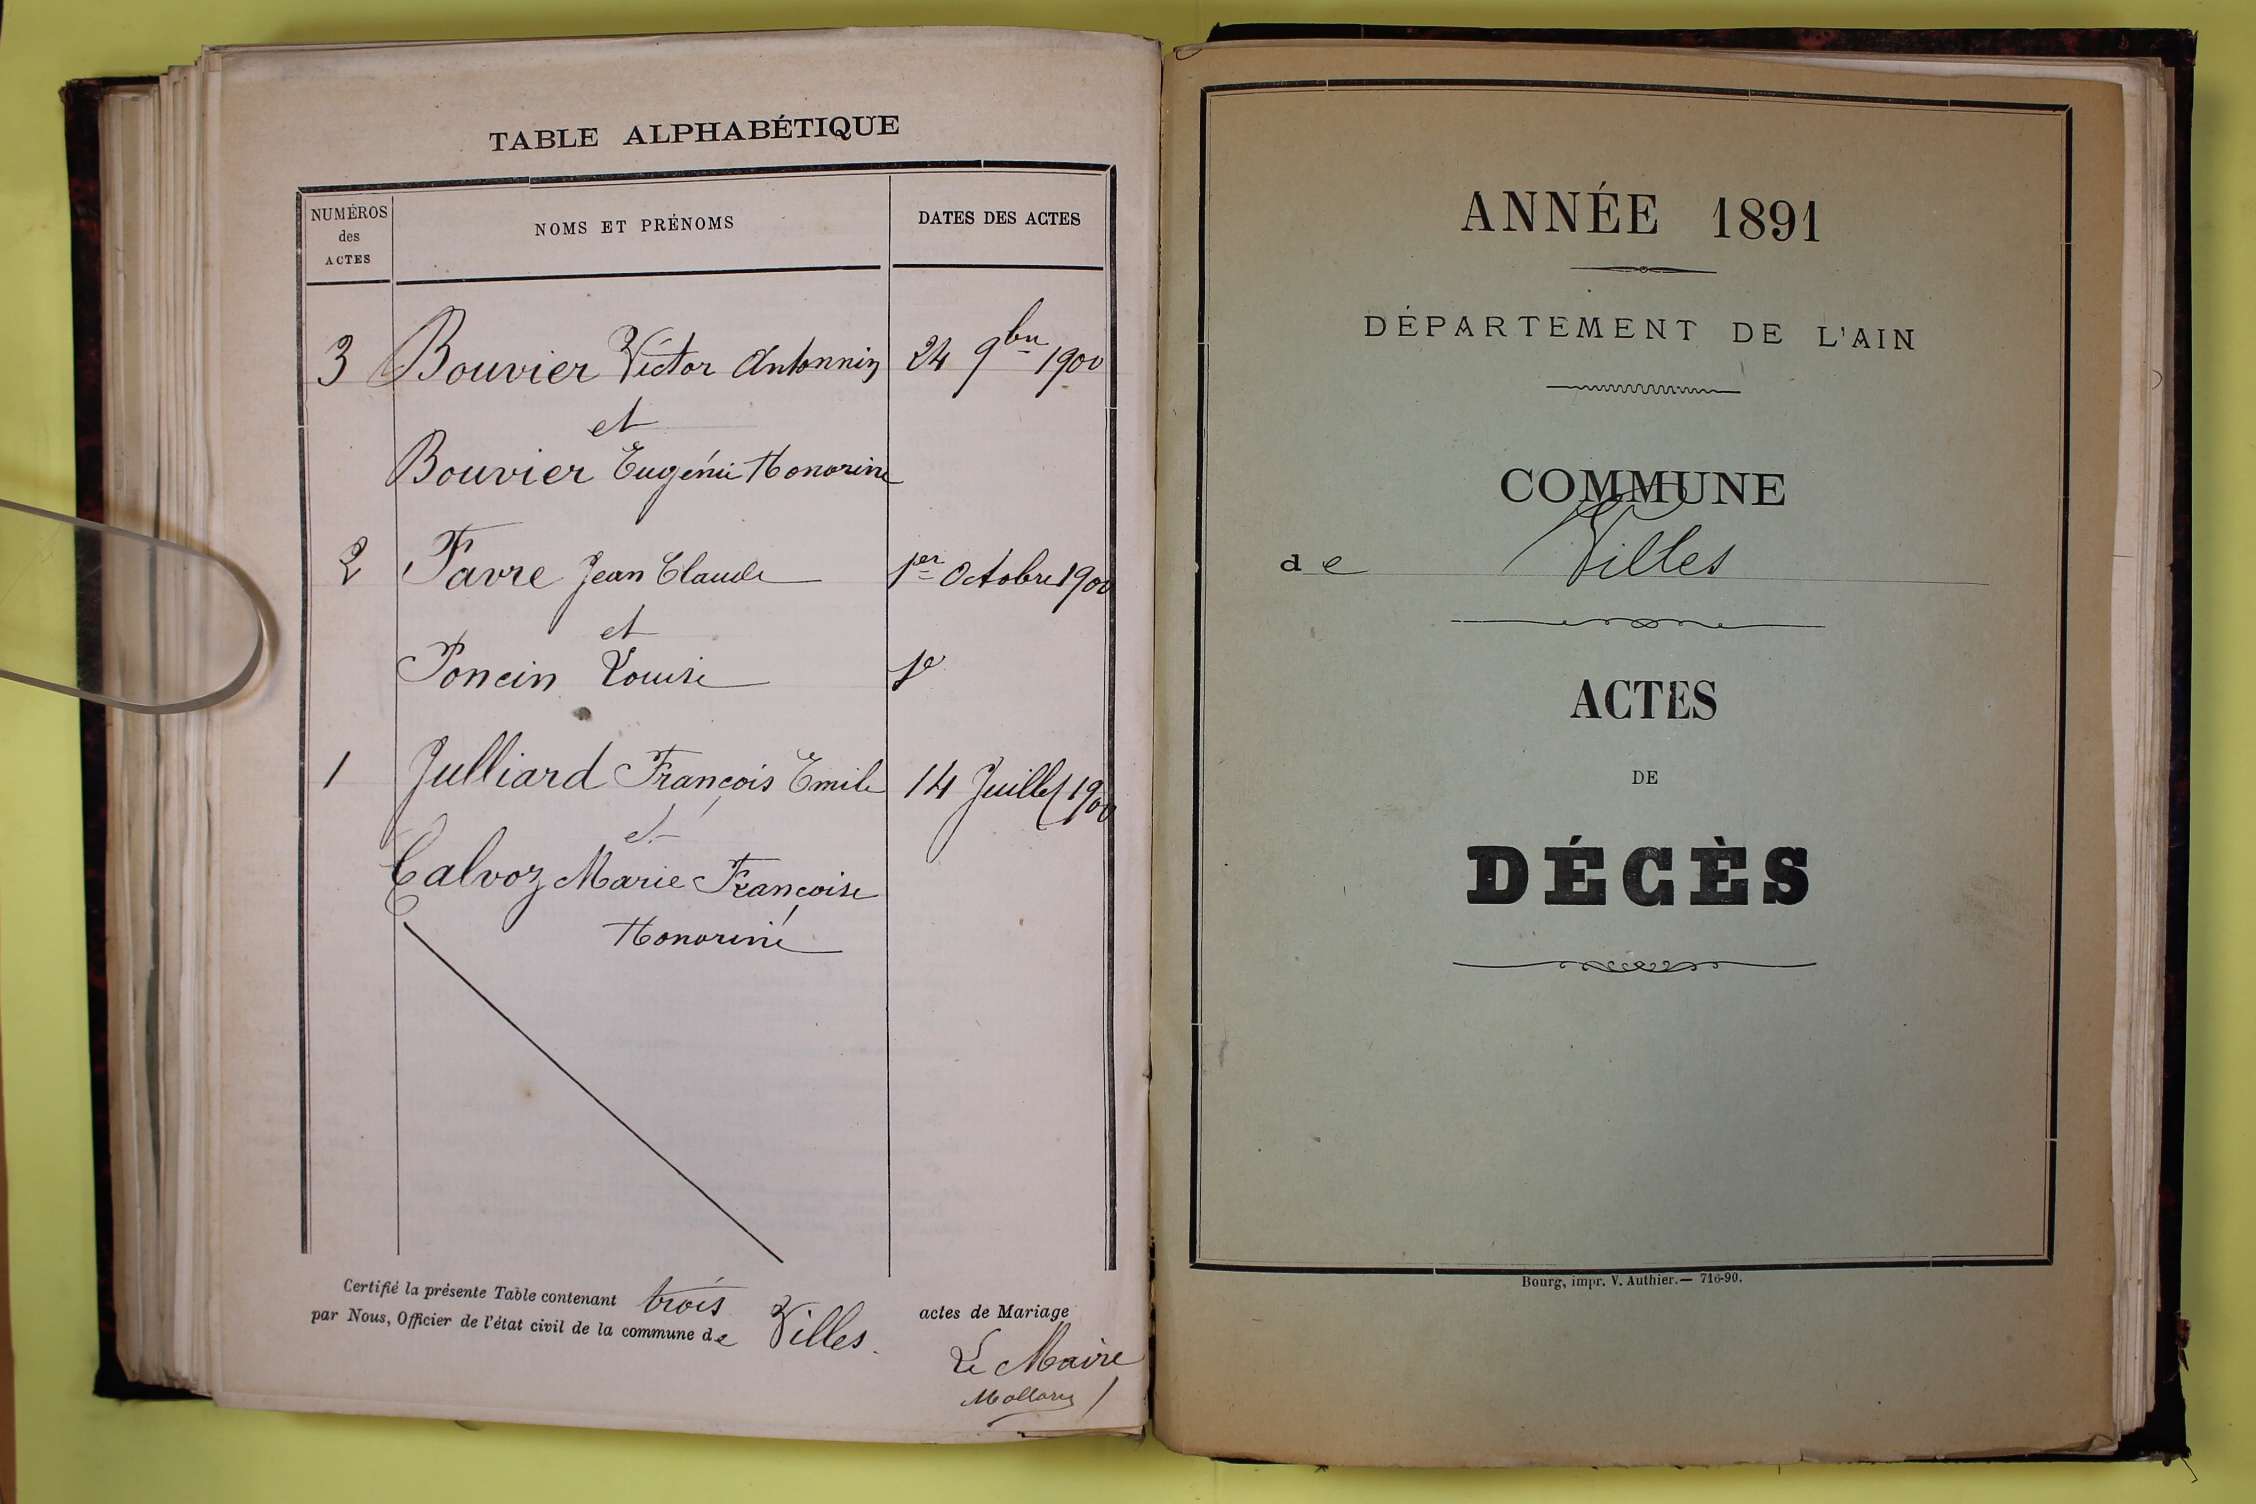 TABLE ALPHABÉTIQUE
NUMÉROS
des
ACTES
NOMS ET PRÉNOMS
DATES DES ACTES
3 Bouvier Victor Antonnin 24 9bre 1900
et
Bouvier Eugénie Honorine
2 Favre Jean Claude 1er Octobre 1900
et
Poncin Louise
1 Julliard François Emile 14 Juillet 1900
et
Calvoz Marie Françoise
Honorine
Certifié la présente Table contenant trois actes de Mariage
par Nous, Officier de l'état civil de la commune de Villes.
Le Maire
ANNÉE 1891
DÉPARTEMENT DE L'AIN
COMMUNE
de Villes
ACTES
DE
DÉCÈS
Bourg, impr. V. Authier. — 716-90.